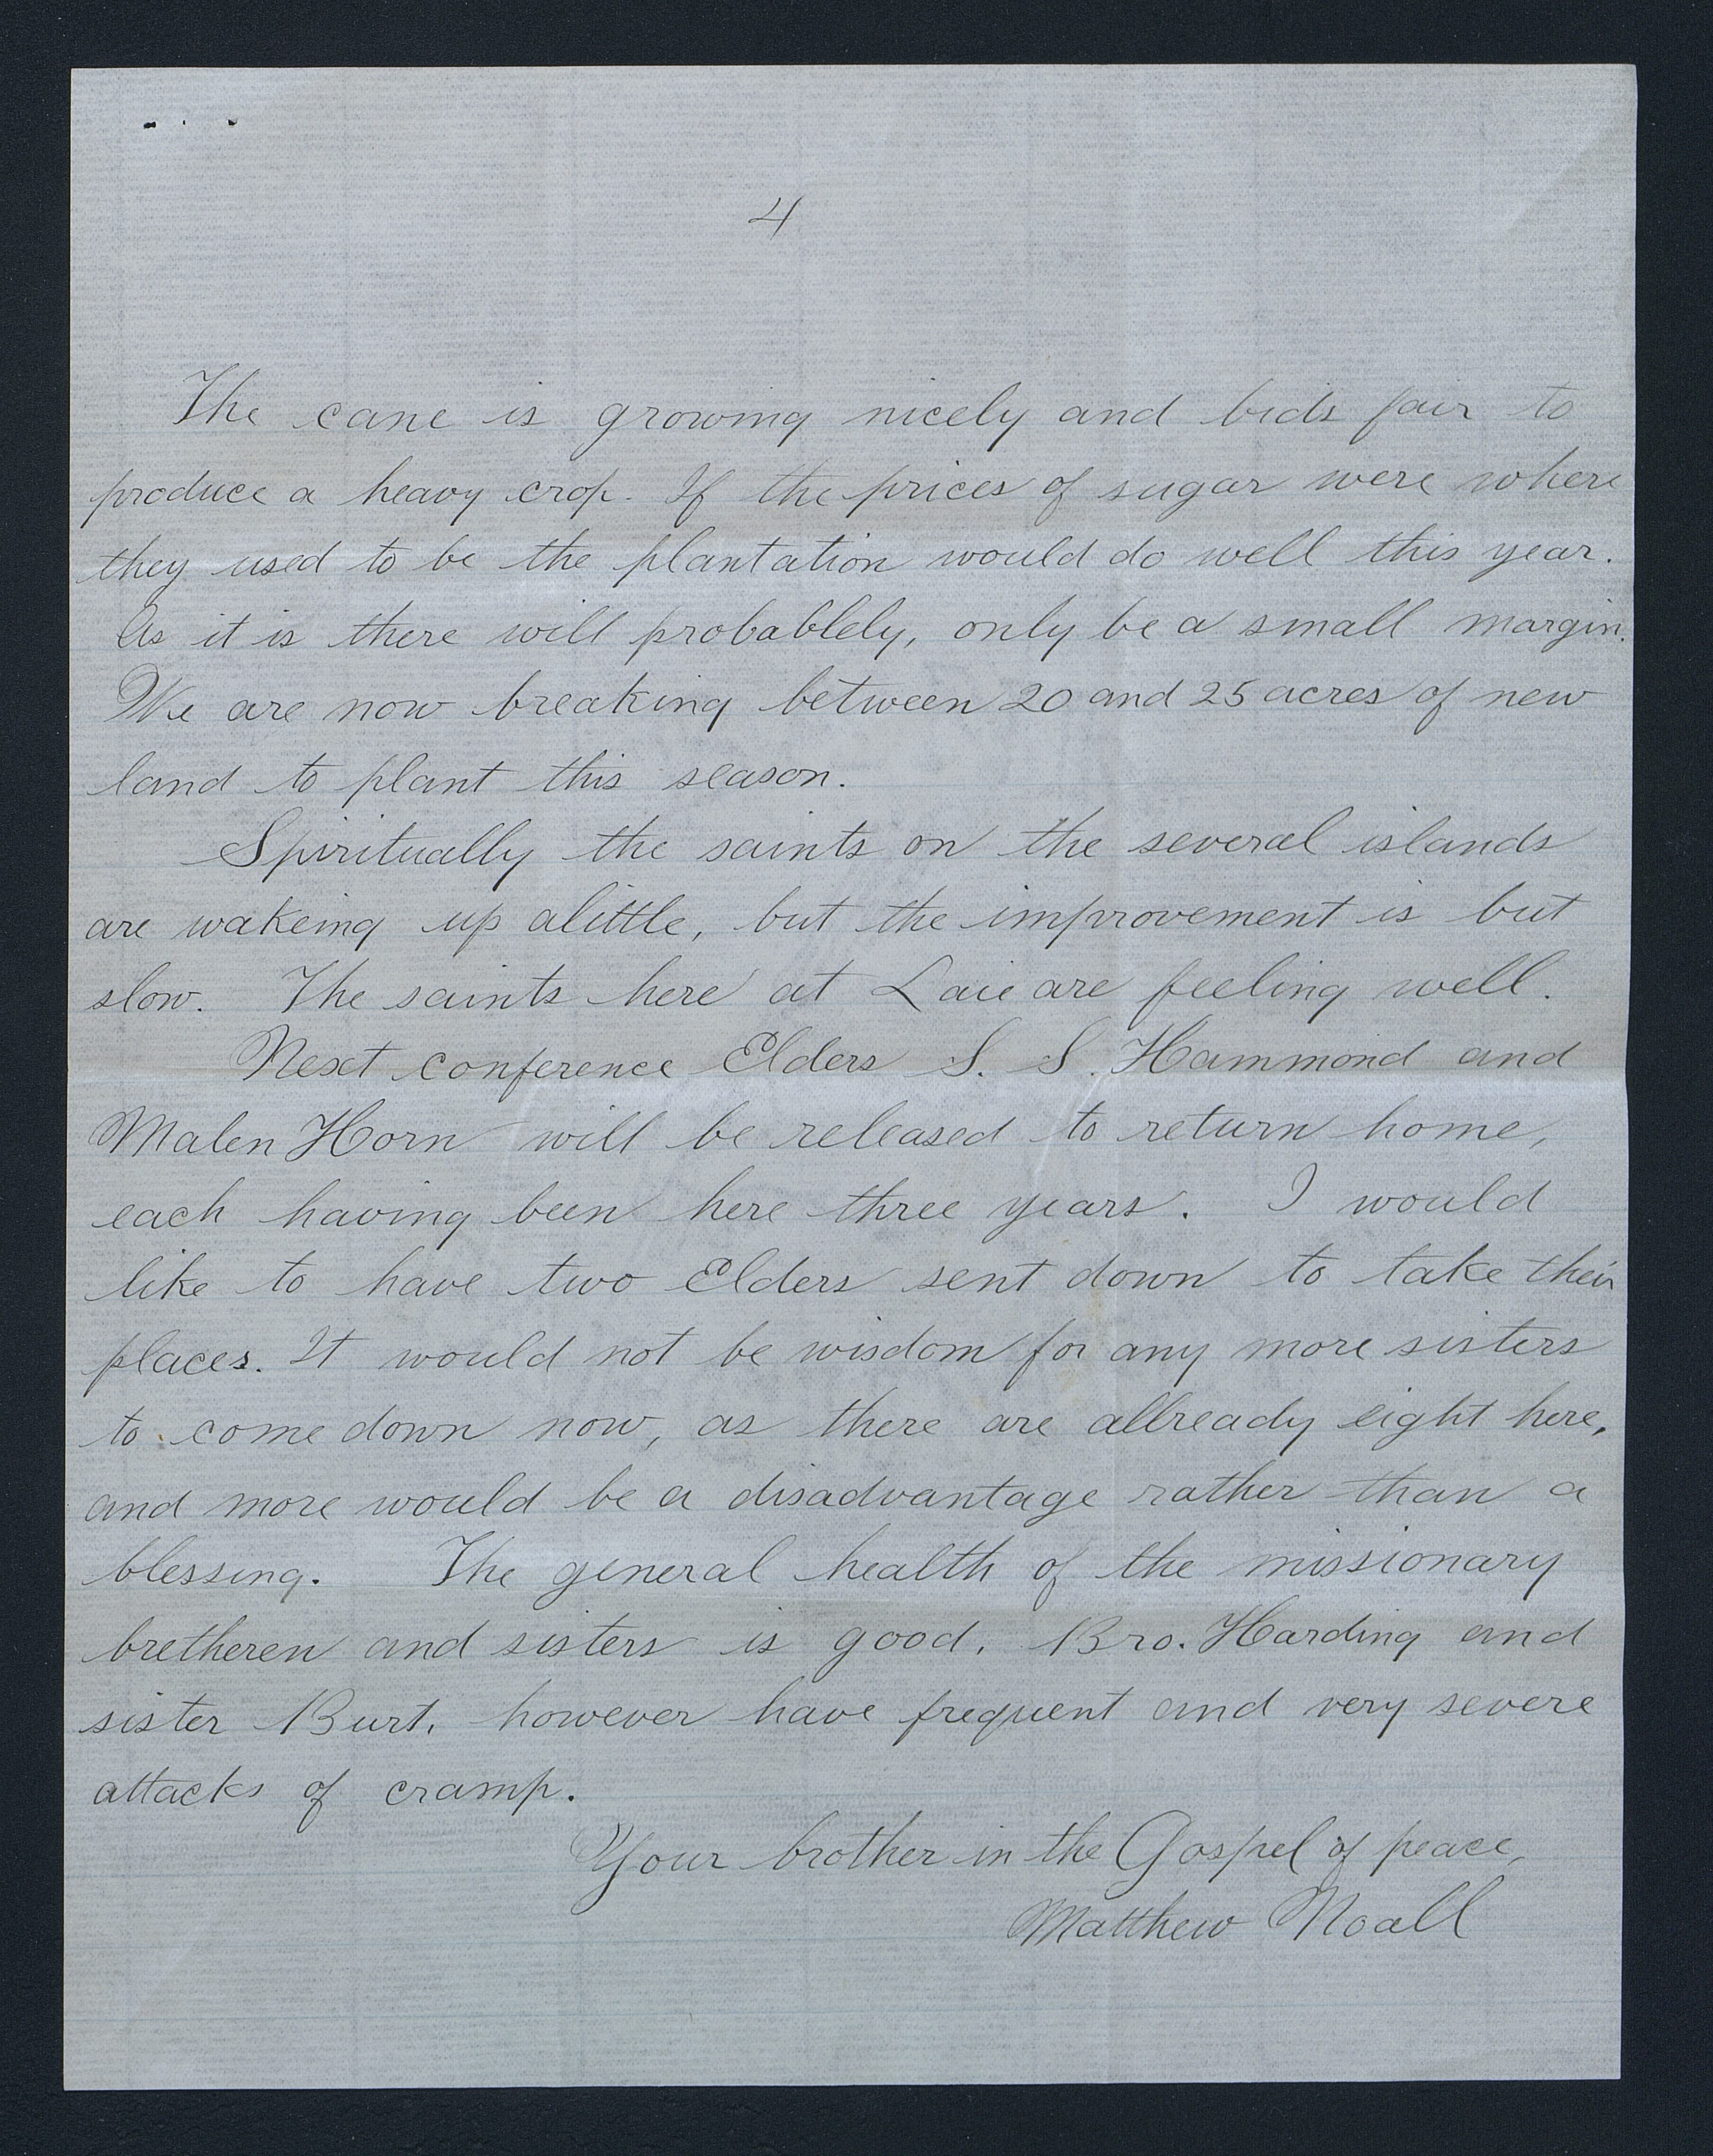 4
The cane is growing nicely and bids fair to
produce a heavy crop. If the prices of sugar were where
they used to be the plantation would do well this year.
As it is there will probablely, only be a small margin.
We are now breaking between 20 and 25 acres of new
land to plant this season.
Spiritually the saints on the several islands
are wakeing up alittle, but the improvement is but
slow. The saints here at Laie are feeling well.
Next conference Elders S. S. Hammond and
Malen Horn will be released to return home,
each having been here three years. I would
like to have two Elders sent down to take their
places. It would not be wisdom for any more sisters
to come down now, as there are allready eight here,
and more would be a disadvantage rather than a
blessing. The general health of the missionary
bretheren and sisters is good. Bro. Harding and
sister Burt, however have frequent and very severe
attacks of cramp.
Your brother in the Gospel of peace,
Matthew Noall